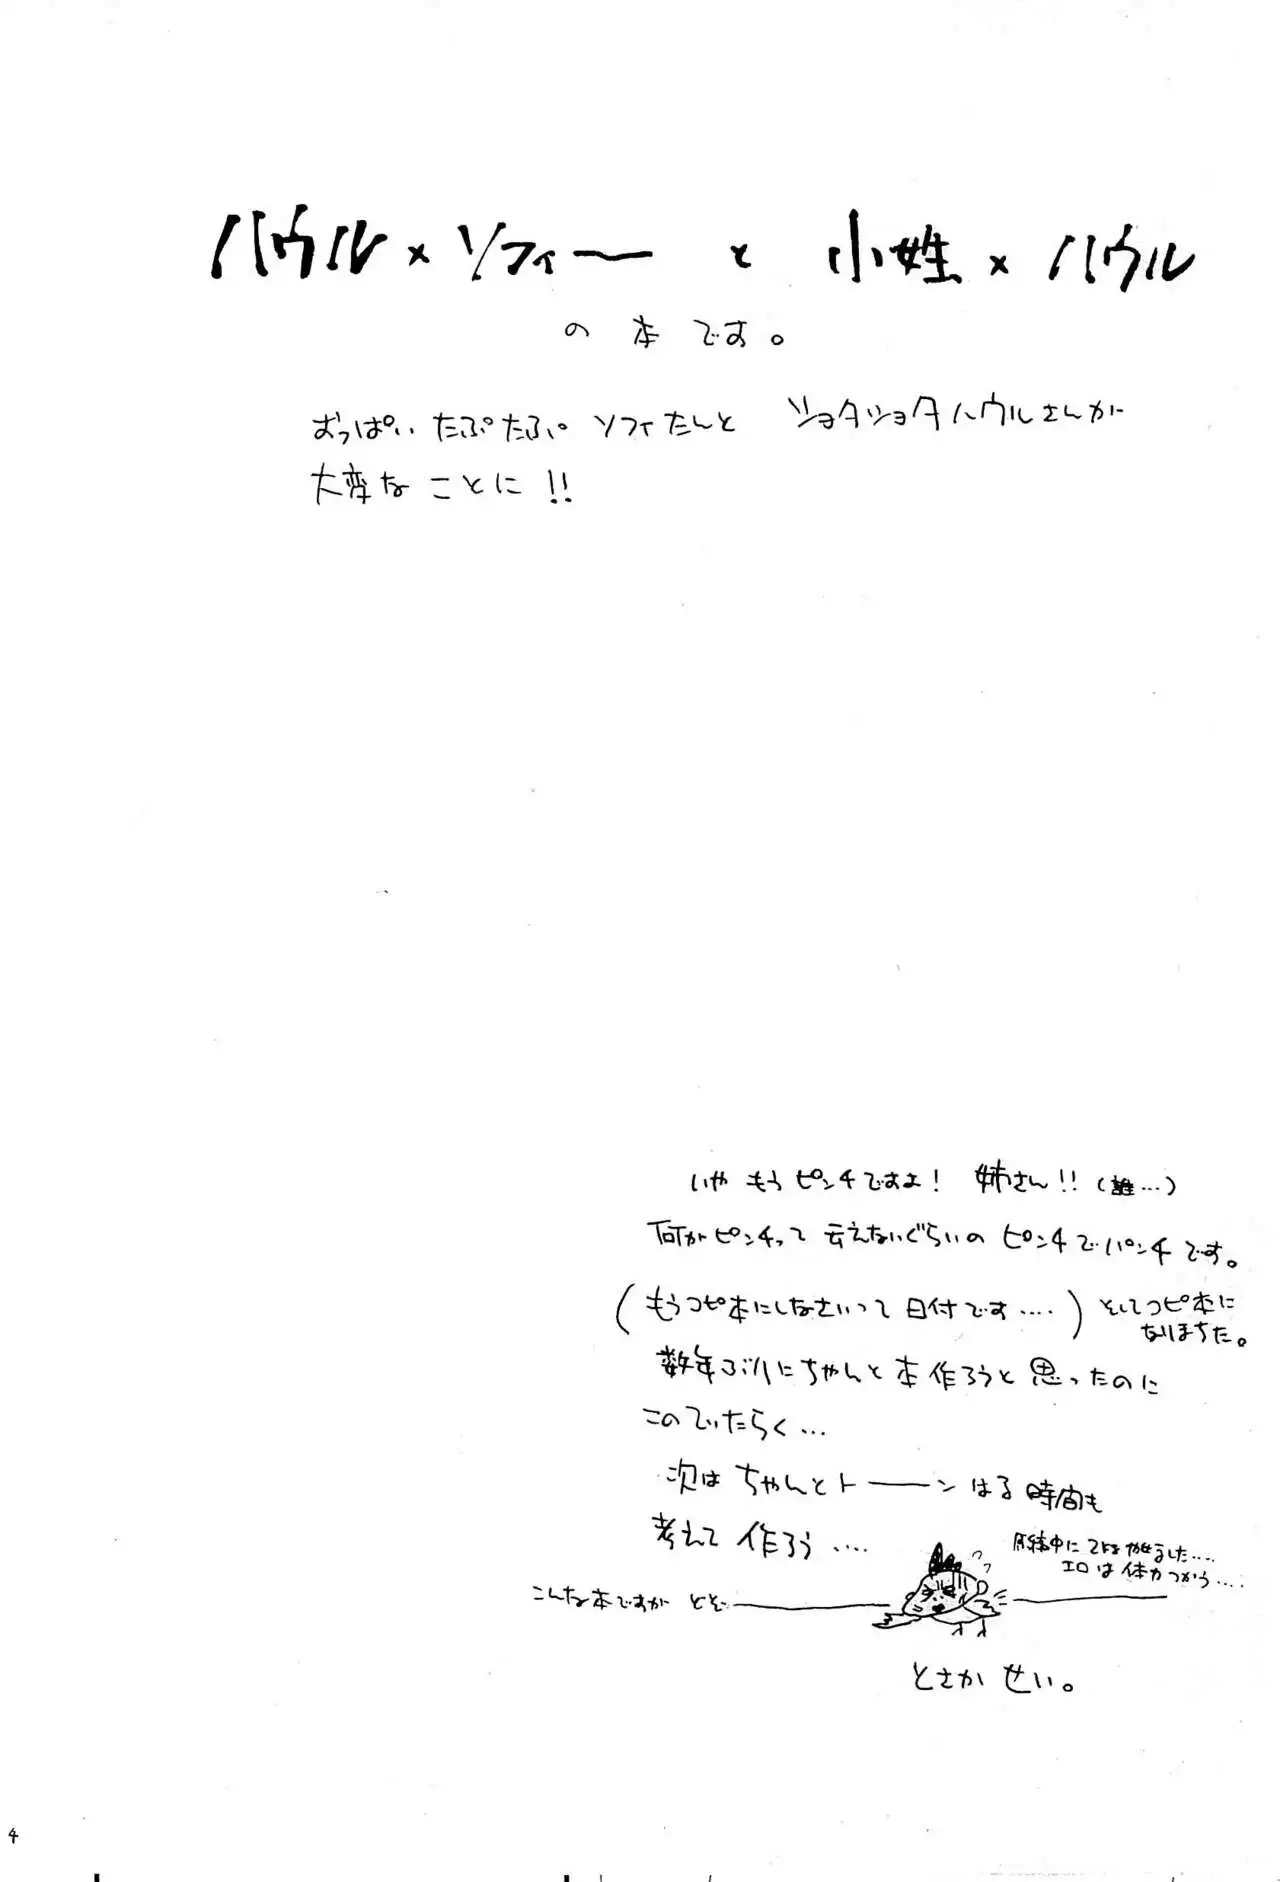 ハウル×ソフィー と 小姓×ハウル
の本です。
おっぱいたぷたぷソフィたんと ショタショタハウルさんが
大変なことに!!
いや もうピンチですよ! 姉さん!!(誰…)
何がピンチって云えないぐらいの ピンチでパンチです。
(もうコピ本にしなさいって日付です‥‥) そしてコピ本に
なりまちた。
数年ぶりにちゃんと本作ろうと思ったのに
このていたらく…
次は ちゃんとトーーン はる時間も
考えて 作ろう‥‥
エロは体力つかう‥‥
こんな本ですが どぞ
とさか せい。
4